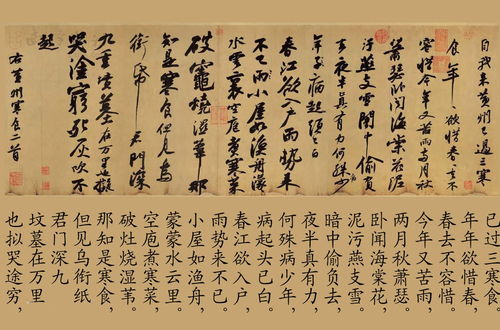 自我来黄州已過三寒
食年〻欲惜春〻去不
容惜今年又苦雨兩月秋
蕭瑟卧聞海棠花泥
汙燕支雪闇中偷負
去夜半真有力何殊少
年子病起頭已白
春江欲入户雨勢来
不已雨小屋如漁舟濛〻
水雲裏空庖煮寒菜
破竈燒濕葦那
知是寒食但見烏
銜帋君門深
九重墳墓在万里也擬
哭塗窮死灰吹不
起
右黄州寒食二首
已过三寒食
年年欲惜春，
春去不容惜。
今年又苦雨，
两月秋萧瑟。
卧闻海棠花，
泥污燕支雪。
暗中偷负去，
夜半真有力，
何殊病少年，
病起头已白。
春江欲入户，
雨势来不已。
小屋如渔舟，
蒙蒙水云里。
空庖煮寒菜，
破灶烧湿苇。
那知是寒食，
但见乌衔纸
君门深九
坟墓在万里
也拟哭途穷，